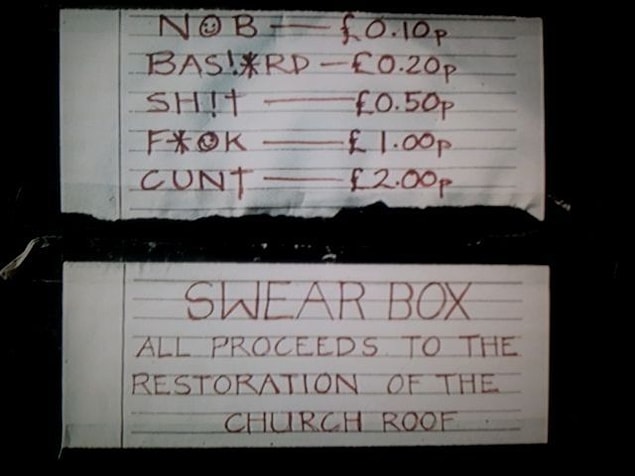 N☺B — £0.10p
BAS!*RD — £0.20p
SH!T — £0.50p
F*☺K — £1.00p
CUNT — £2.00p
SWEAR BOX
ALL PROCEEDS TO THE
RESTORATION OF THE
CHURCH ROOF